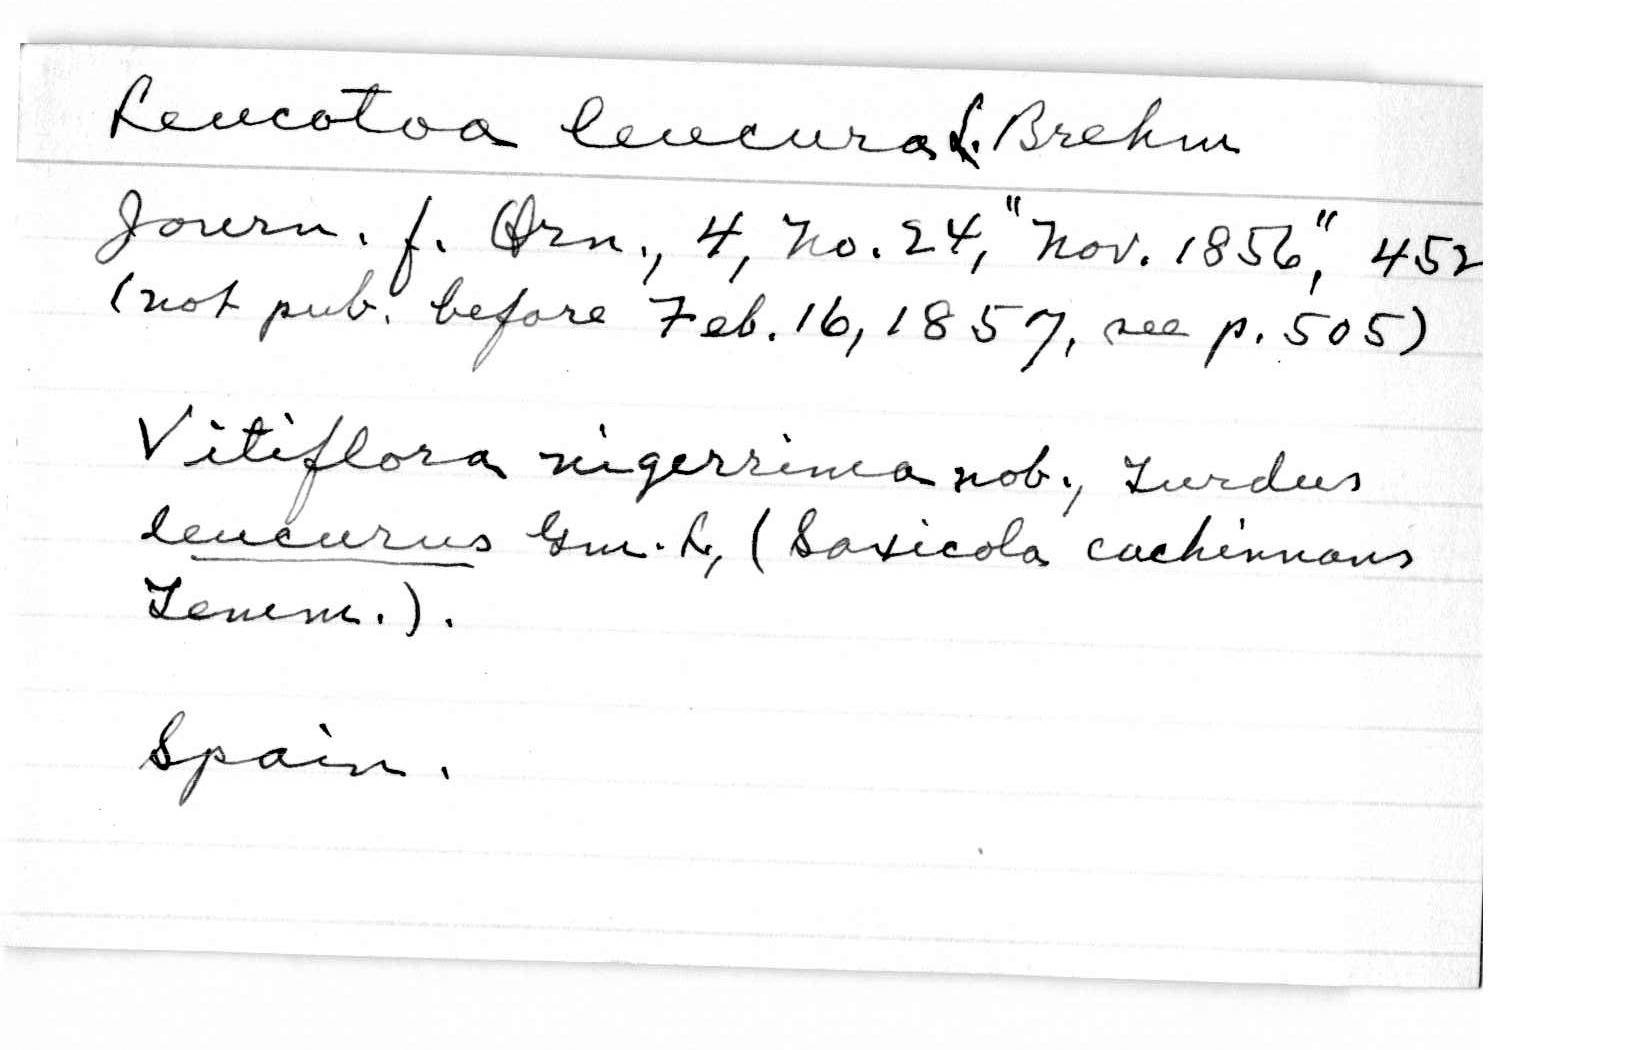 Leucotoa leucura L. Brehm
Journ. f. Orn., 4, No. 24, "Nov. 1856," 452
(not pub. before Feb. 16, 1857, see p. 505)
Vitiflora nigerrima nob., Turdus
leucurus Gm. L., (Saxicola cachinnans
Temm.).
Spain.